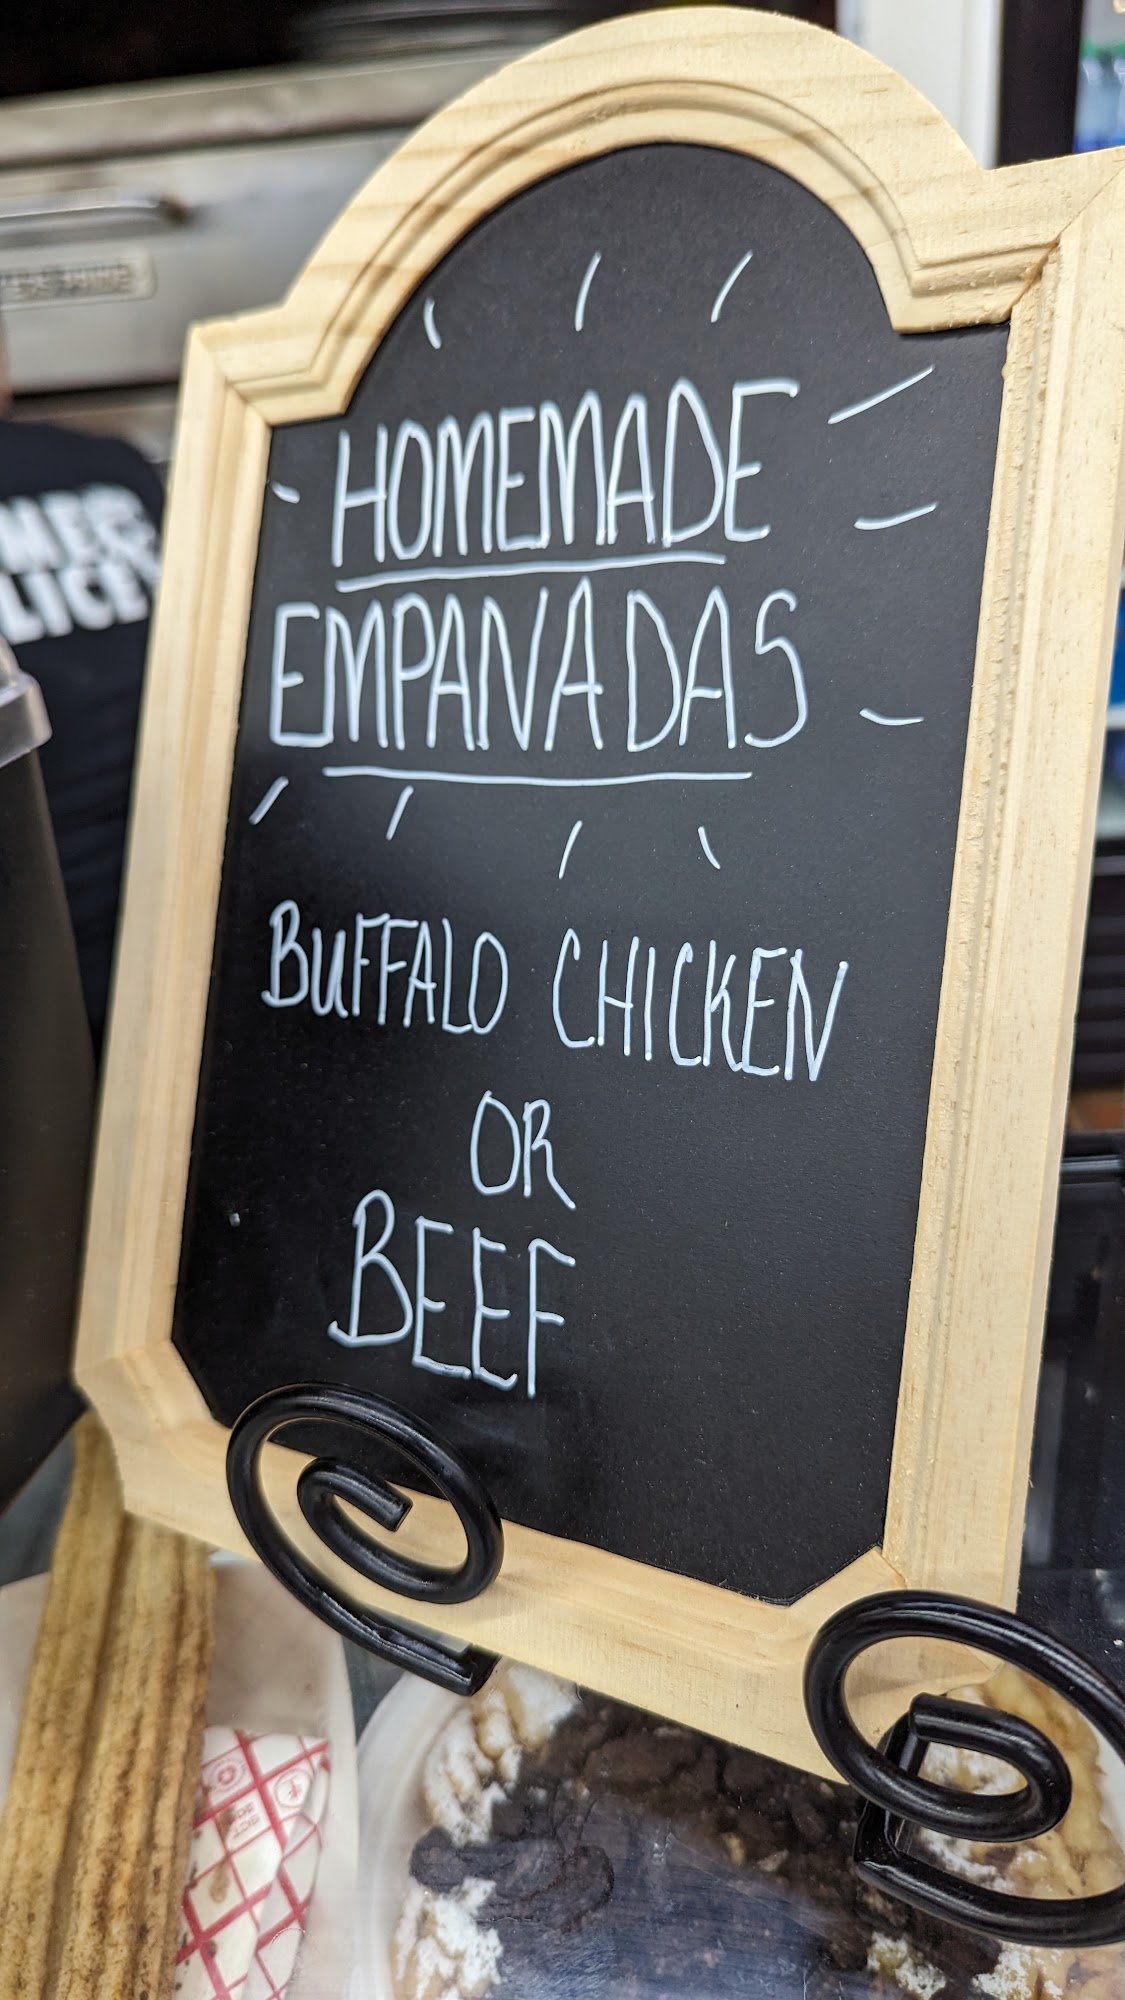 HOMEMADE
EMPANADAS
BUFFALO CHICKEN
OR
BEEF